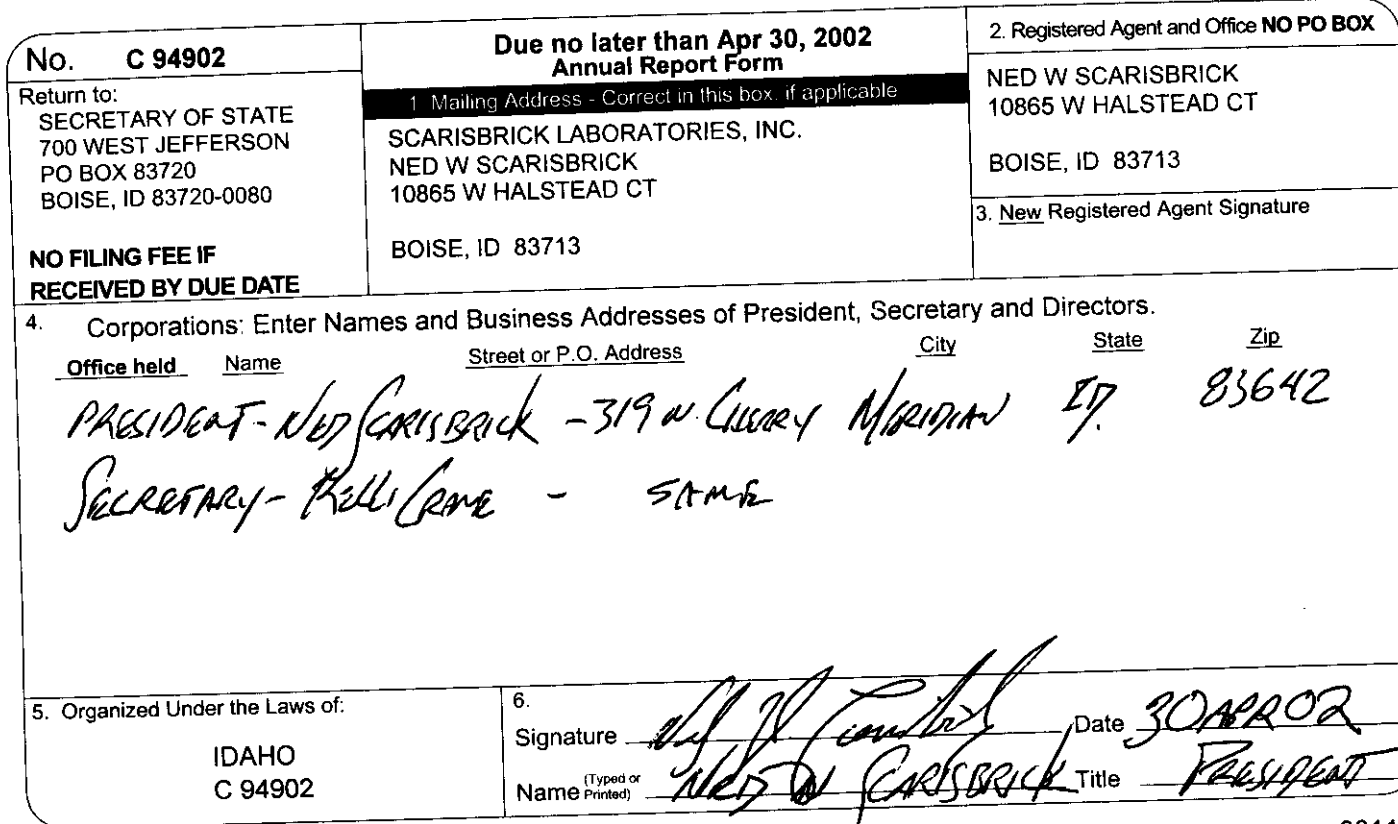 No. C 94902
Return to:
SECRETARY OF STATE
700 WEST JEFFERSON
PO BOX 83720
BOISE, ID 83720-0080
NO FILING FEE IF
RECEIVED BY DUE DATE
Due no later than Apr 30, 2002
Annual Report Form
1 Mailing Address - Correct in this box, if applicable
SCARISBRICK LABORATORIES, INC.
NED W SCARISBRICK
10865 W HALSTEAD CT
BOISE, ID 83713
2. Registered Agent and Office NO PO BOX
NED W SCARISBRICK
10865 W HALSTEAD CT
BOISE, ID 83713
3. New Registered Agent Signature
4. Corporations: Enter Names and Business Addresses of President, Secretary and Directors.
Office held Name Street or P.O. Address City State Zip
PRESIDENT - NED SCARISBRICK - 319 N. CHERRY MERIDIAN ID. 83642
SECRETARY - KELLI CRANE - SAME
5. Organized Under the Laws of:
IDAHO
C 94902
6.
Signature Date 30APR02
Name (Typed or Printed) NED W SCARISBRICK Title PRESIDENT